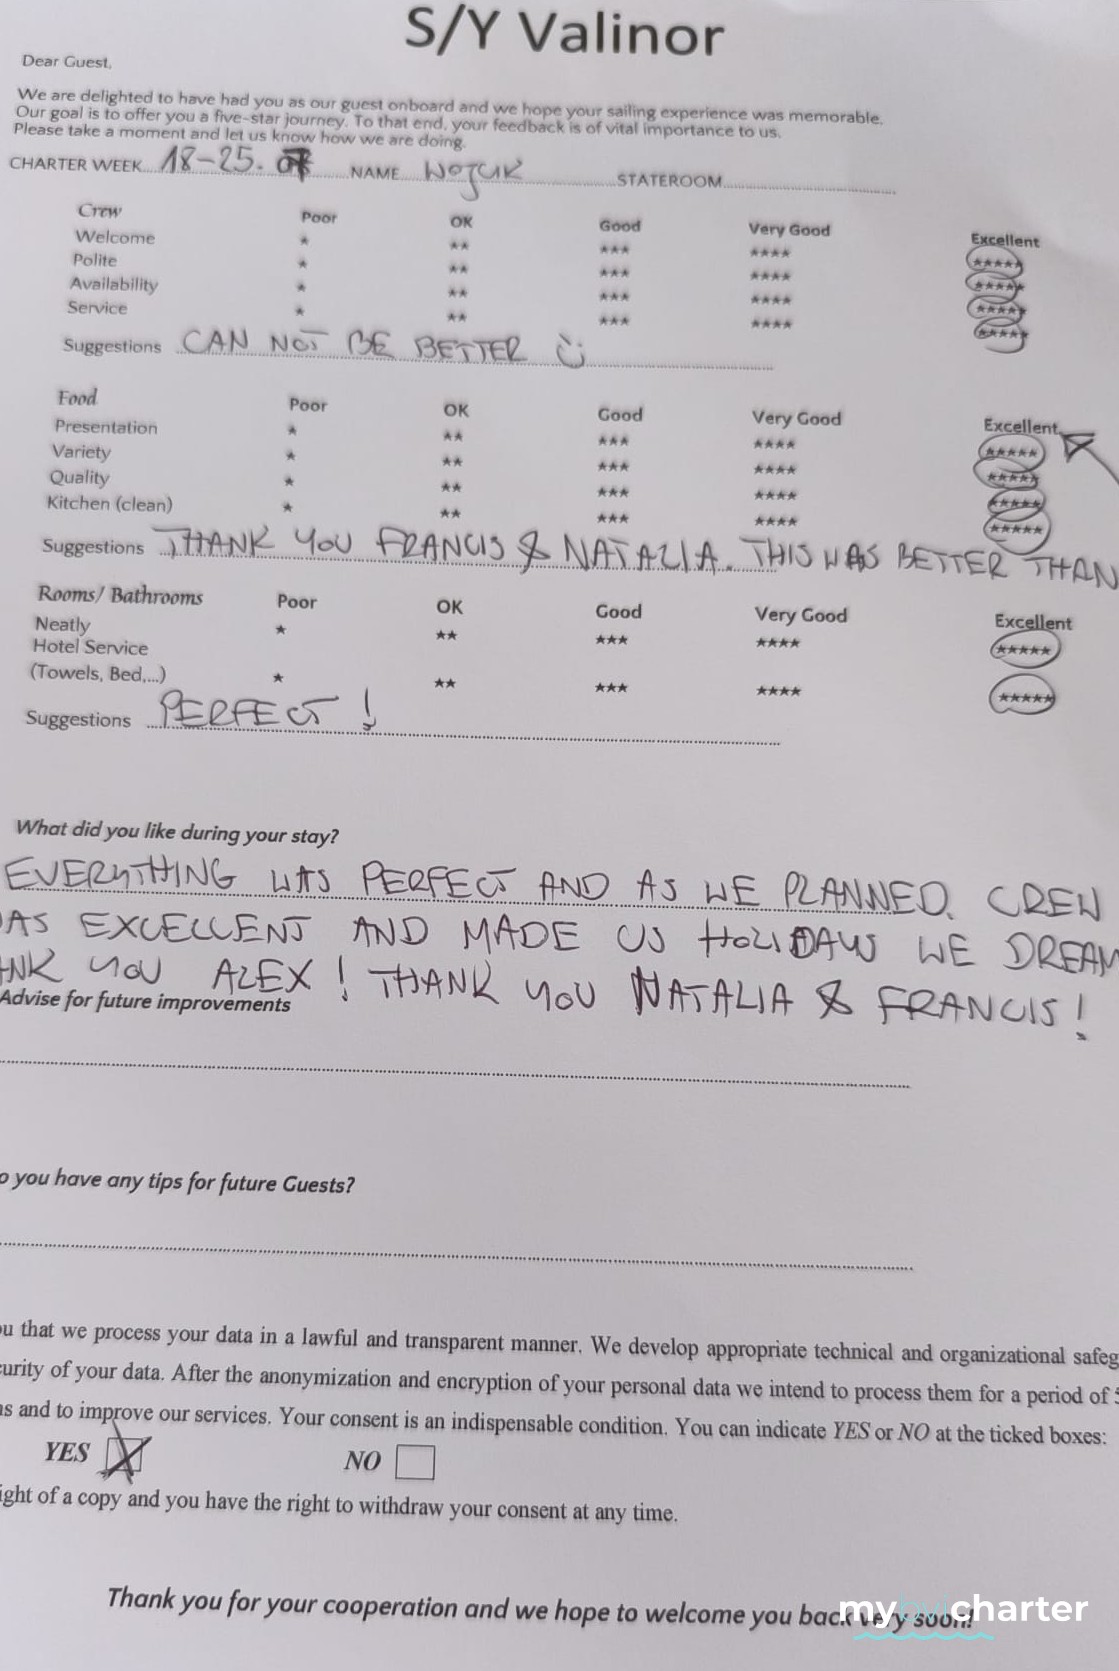 S/Y Valinor
Dear Guest,
We are delighted to have had you as our guest onboard and we hope your sailing experience was memorable.
Our goal is to offer you a five-star journey. To that end, your feedback is of vital importance to us.
Please take a moment and let us know how we are doing.
CHARTER WEEK 18-25. 07 NAME WOJCIK STATEROOM
Crew Poor OK Good Very Good Excellent
Welcome * ** *** **** *****
Polite * ** *** **** *****
Availability * ** *** **** *****
Service * ** *** **** *****
Suggestions CAN NOT BE BETTER
Food Poor OK Good Very Good Excellent
Presentation * ** *** **** *****
Variety * ** *** **** *****
Quality * ** *** **** *****
Kitchen (clean) * ** *** **** *****
Suggestions THANK YOU FRANCIS & NATALIA. THIS WAS BETTER THAN
Rooms/ Bathrooms Poor OK Good Very Good Excellent
Neatly * ** *** **** *****
Hotel Service
(Towels, Bed,...) * ** *** **** *****
Suggestions PERFECT !
What did you like during your stay?
EVERYTHING WAS PERFECT AND AS WE PLANNED. CREW
AS EXCELLENT AND MADE US HOLIDAYS WE DREAM
NK YOU ALEX! THANK YOU NATALIA & FRANCIS!
Advise for future improvements
o you have any tips for future Guests?
ou that we process your data in a lawful and transparent manner. We develop appropriate technical and organizational safeg
curity of your data. After the anonymization and encryption of your personal data we intend to process them for a period of 5
ns and to improve our services. Your consent is an indispensable condition. You can indicate YES or NO at the ticked boxes:
YES NO
ight of a copy and you have the right to withdraw your consent at any time.
Thank you for your cooperation and we hope to welcome you back very soon!
mybvicharter